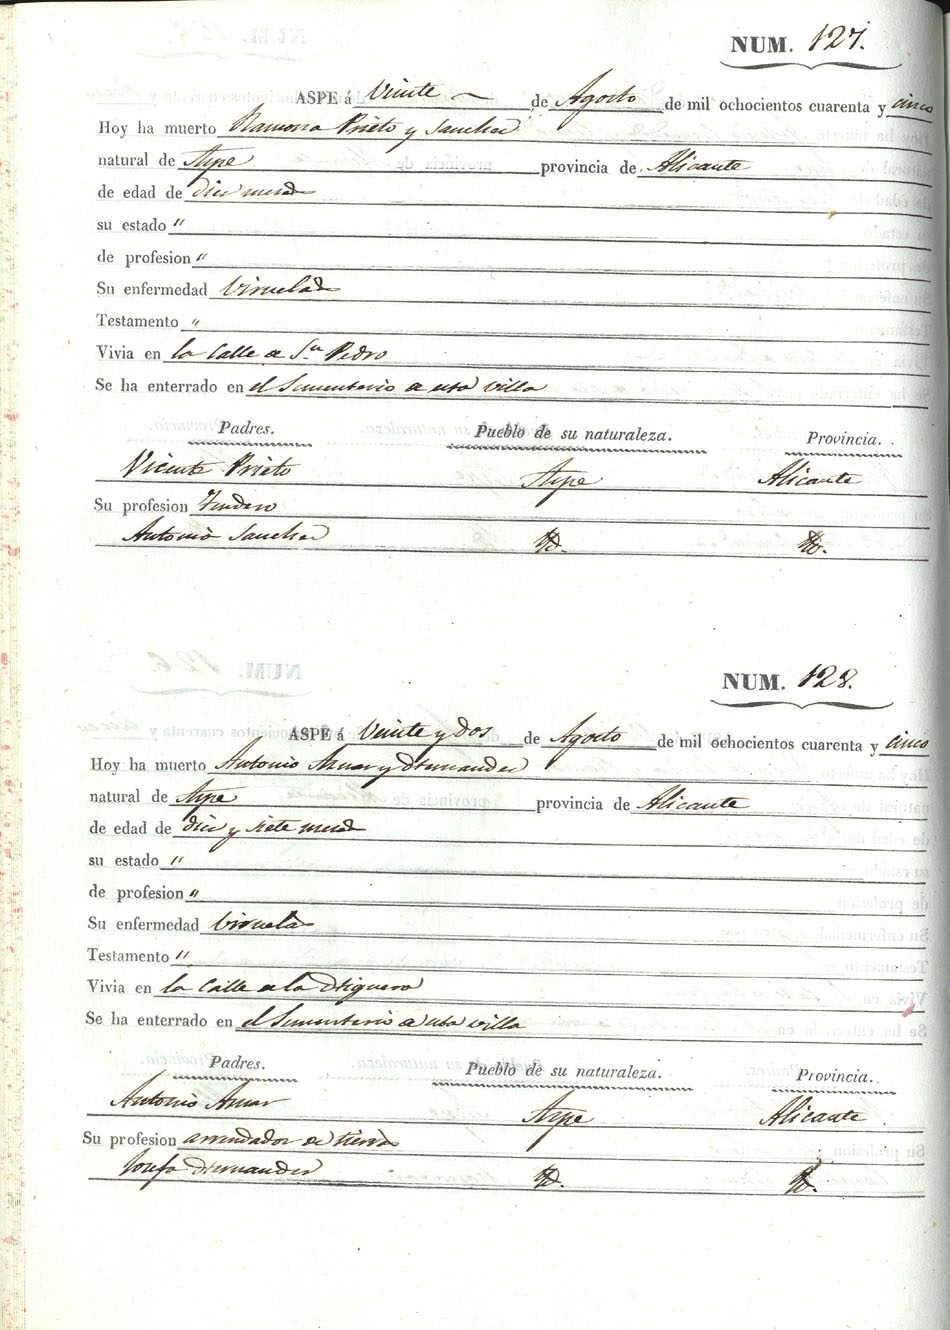 NUM. 127.
ASPE á Veinte de Agosto de mil ochocientos cuarenta y cinco
Hoy ha muerto Ramona Prieto y Sanchez
natural de Aspe provincia de Alicante
de edad de diez meses
su estado "
de profesion "
Su enfermedad Viruelas
Testamento "
Vivia en la Calle de Sn Pedro
Se ha enterrado en el Simenterio de esta villa
Padres. Pueblo de su naturaleza. Provincia.
Vicente Prieto Aspe Alicante
Su profesion Tendero
Antonia Sanchez Yd. Yd.
NUM. 128.
ASPE á Veinte y dos de Agosto de mil ochocientos cuarenta y cinco
Hoy ha muerto Antonio Aznar y Hernandez
natural de Aspe provincia de Alicante
de edad de diez y siete meses
su estado "
de profesion "
Su enfermedad Viruelas
Testamento "
Vivia en la Calle de la Higuera
Se ha enterrado en el Simenterio de esta villa
Padres. Pueblo de su naturaleza. Provincia.
Antonio Aznar Aspe Alicante
Su profesion arrendador de tierras
Josefa Hernandez Yd. Yd.